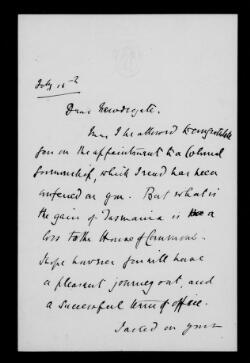 July 15th
Dear Newdegate.
May I be allowed to congratulate
you on the appointment to a Colonial
Governorship, which I read has been
conferred on you. But what is
the gain of Tasmania is a
loss to the House of Commons.
I hope however you will have
a pleasant journey out, and
a successful time of office.
I called on your